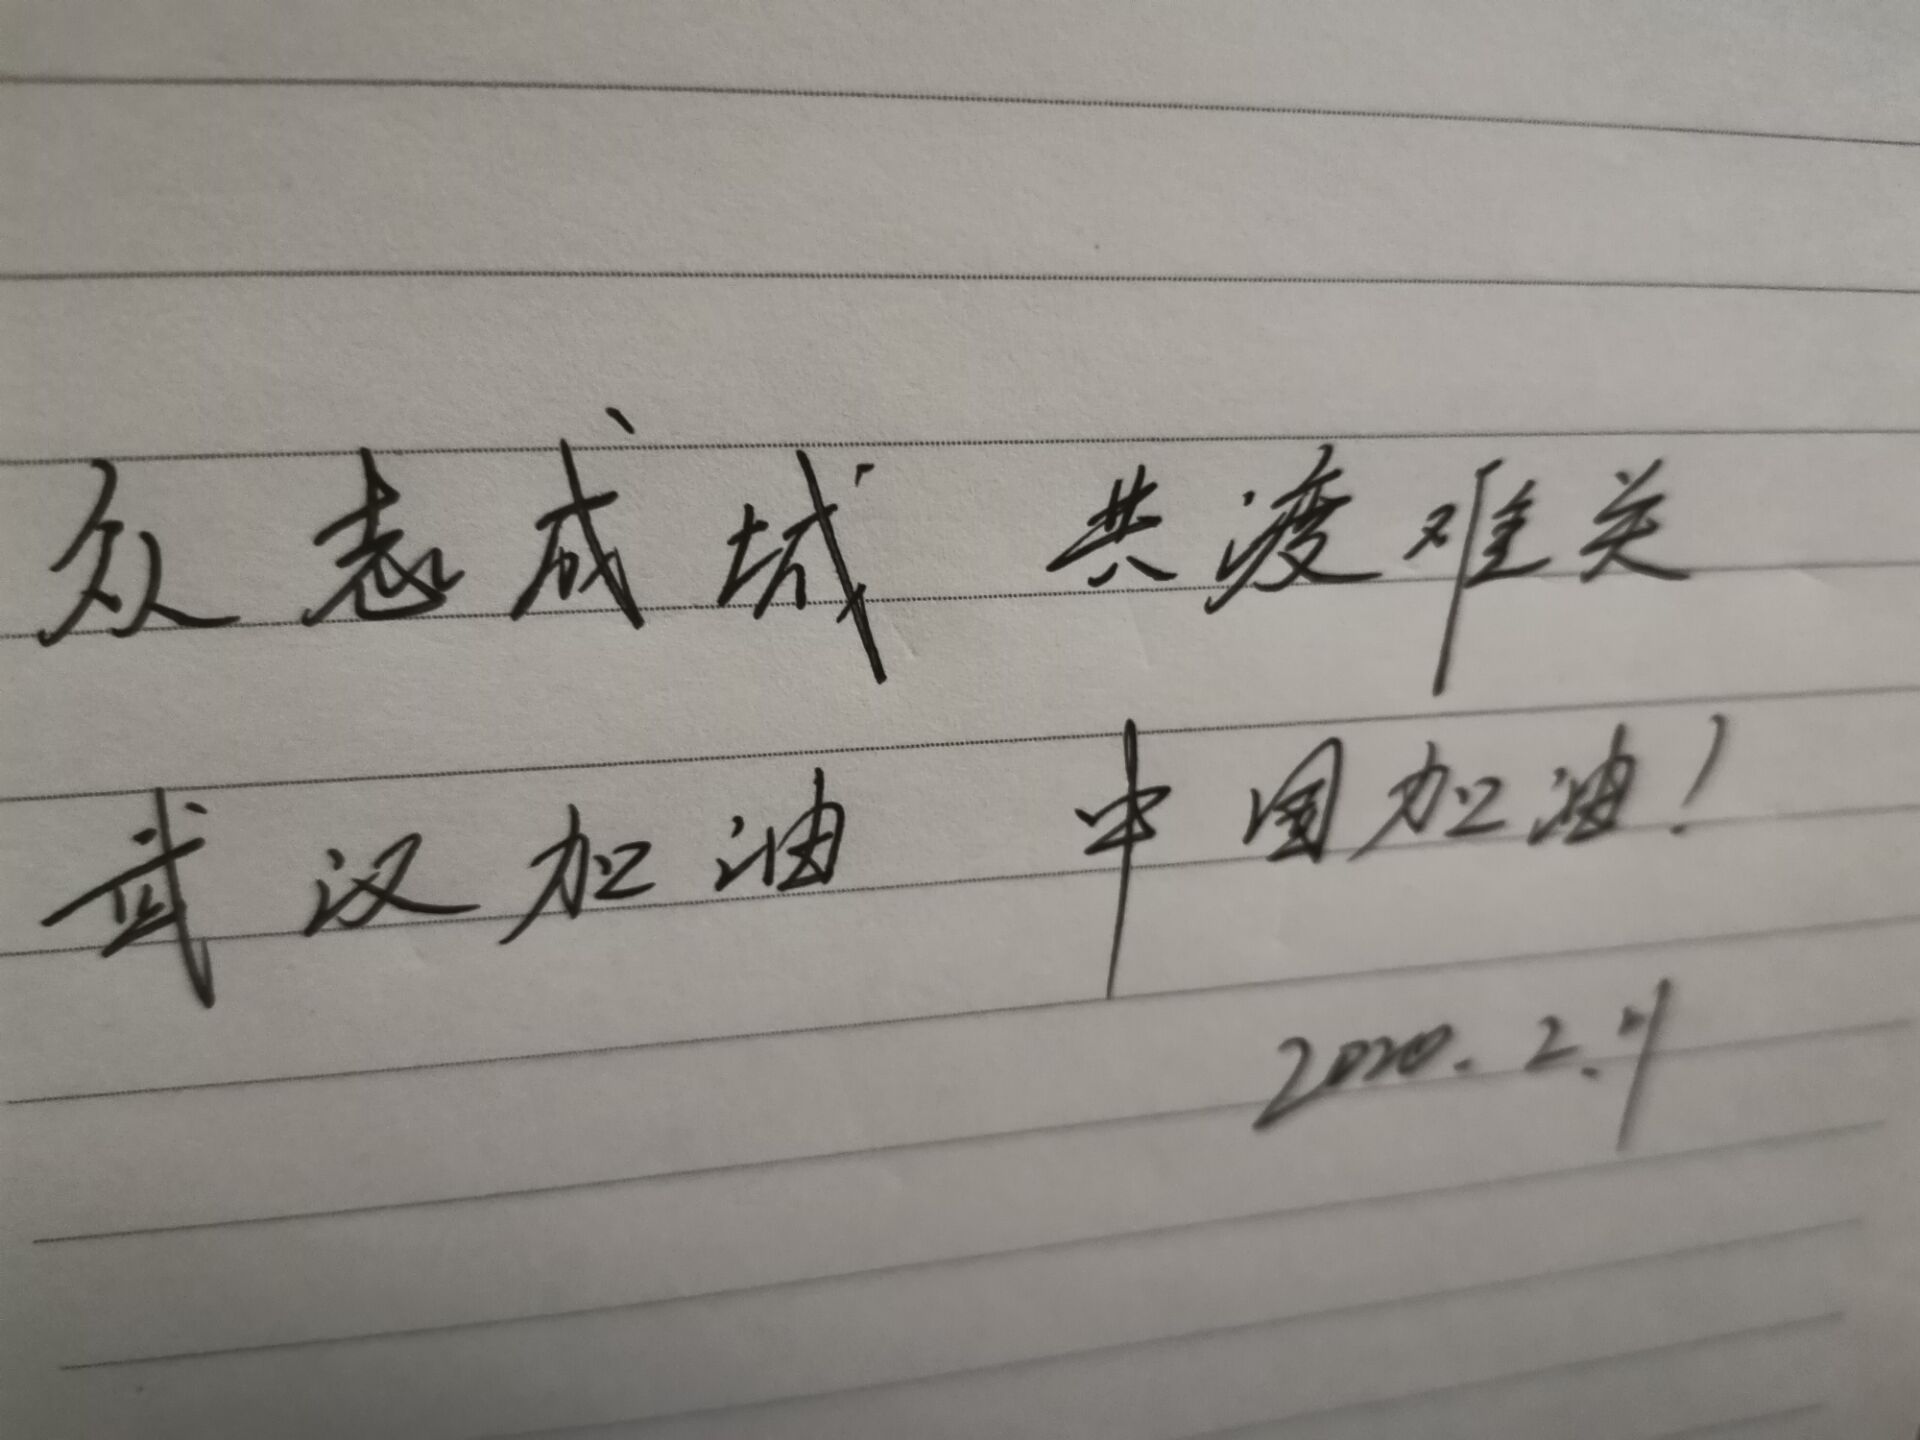 众志成城 共渡难关
武汉加油 中国加油!
2020.2.